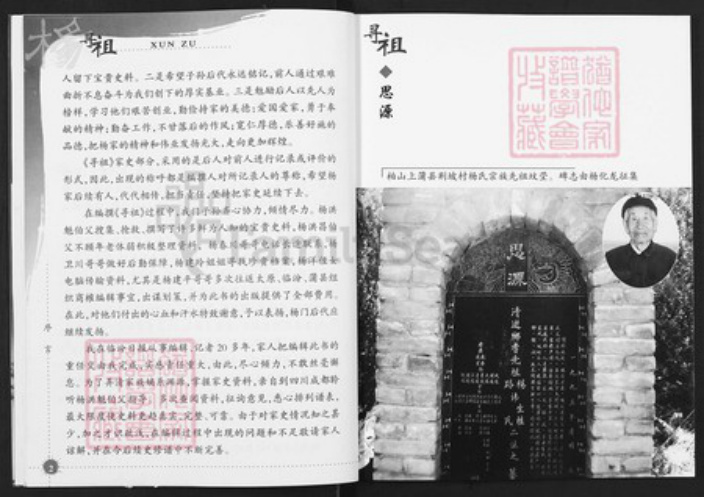 寻祖
XUN ZU
人留下宝贵史料。二是希望子孙后代永远铭记,前人通过艰难
曲折不息奋斗为我们创下的厚实基业。三是勉励后人以先人为
榜样,学习他们艰苦创业,勤俭持家的美德;爱国爱家,勇于奉
献的精神;勤奋工作,不甘落后的作风;宽仁厚德,乐善好施的
品德,把杨家的精神和伟业发扬光大,走向更加辉煌。
《寻祖》家史部分,采用的是后人对前人进行记录或评价的
形式,因此,出现的称呼都是编撰人对所记录人的尊称,希望杨
家后续有人,代代相传,担当重任,坚持把家史延续下去。
在编撰《寻祖》过程中,我们子孙齐心协力,倾情尽力。杨洪
魁伯父搜集、抢救、撰写了许多鲜为人知的宝贵史料,杨洪
父不顾年老体弱积极整理资料、杨
卫川哥哥做好后勤保障,杨建玲姐姐寻找珍贵档案,杨
电脑传输资料,尤其是杨建平哥哥多次往返太原、临汾、蒲县组
织商榷编辑事宜,出谋划策,并为此书的出版提供了全部费用。
在此,对他们付出的心血和汗水特致谢意,予以表扬,杨门后代应
继续发扬。
我在临汾日报从事编辑、记者20多年,家人把编辑此书的
重任交由我完成,实感责任重大,由此,尽心倾力,不敢丝毫懈
怠。为了弄清家族辅系渊源,掌握家史资料,亲自到四川成都聆
听杨洪魁伯父指导,多次查阅资料,征询意见,悉心排列谱表,
最大限度使史料更趋真实、完整、可靠。由于对家史情况知之甚
少,加之才识疏浅,在编辑过程中出现的问题和不足敬请家人
谅解,并在今后续史修谱中不断完善。
序言
2
寻祖
◆思源
柏山上蒲县荆坡村杨氏宗族先祖坟茔。碑志由杨化龙征集
思源